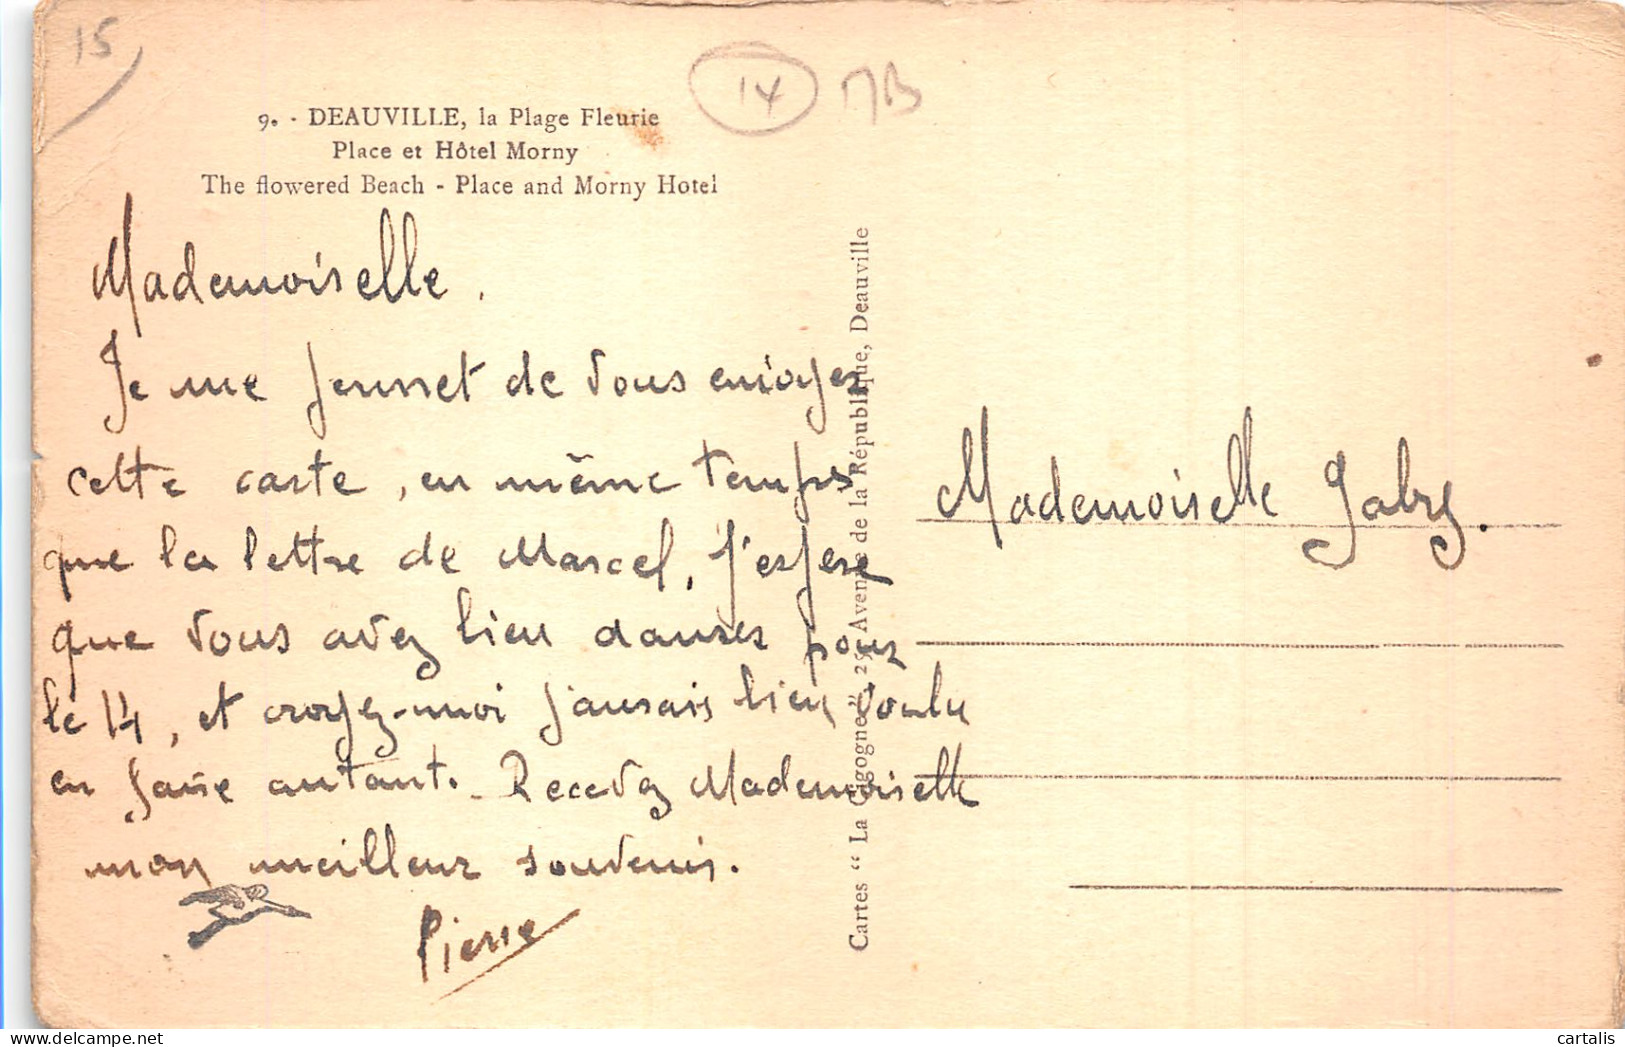 15
14 MB
9. - DEAUVILLE, la Plage Fleurie
Place et Hôtel Morny
The flowered Beach - Place and Morny Hotel
Mademoiselle.
Je me permet de vous envoyer
cette carte, en même temps
que la lettre de Marcel, j'espere
que vous avez bien danser pour
le 14, et croyez-moi j'aurais bien voulu
en faire autant. Recevez Mademoiselle
mon meilleur souvenir.
Pierre
Cartes “ La Cigogne ”, 25, Avenue de la République, Deauville
Mademoiselle Gaby.
cartalis